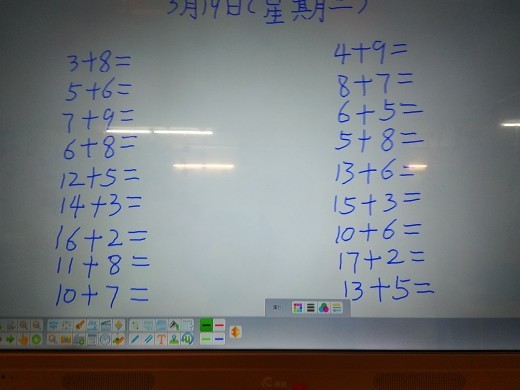 3月19日(星期二)
3+8=
5+6=
7+9=
6+8=
12+5=
14+3=
16+2=
11+8=
10+7=
4+9=
8+7=
6+5=
5+8=
13+6=
15+3=
10+6=
17+2=
13+5=